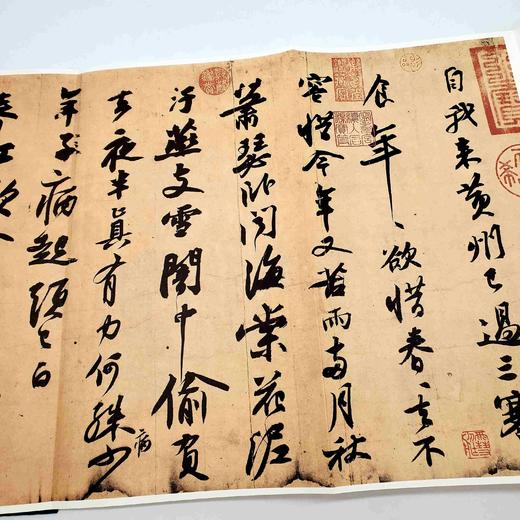 自我來黃州已過三寒
食年〻欲惜春〻去不
容惜今年又苦雨兩月秋
蕭瑟卧聞海棠花泥
汙燕支雪闇中偷負
去夜半真有力何殊少
病
年子病起頭已白
春江欲入